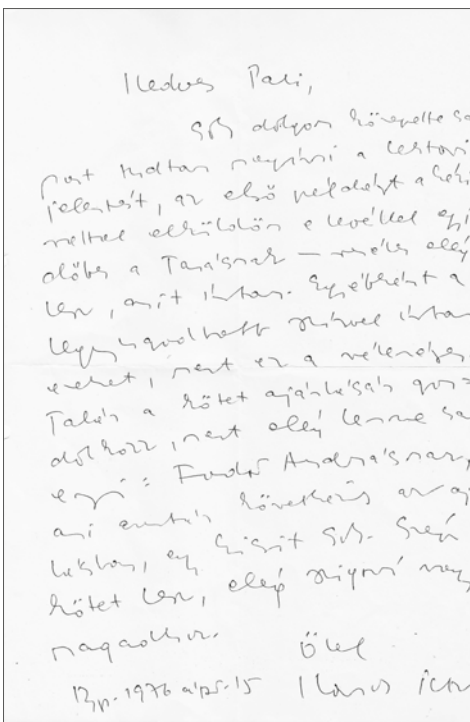 Kedves Pali,
Sok dolgom közepette cs
most tudtam megírni a lektori
jelentést, az első példányt a kézi
rattal elküldöm e levéllel egyi
dőben a Tanácsnak — remélem elég
lesz, amit írtam. Egyébként a
legnyugodtabb szívvel írtam
ezeket, mert ez a véleményem
Talán a kötet ajánlásán gon
dolkozz, mert elég lenne cs
ennyi: Fodor Andrásnak,
ami ezután következik az aj
lásban, egy kicsit sok. Szép
kötet lesz, elég szigorú vagy
magadhoz.
Ölel
Bp. 1976 ápr. 15